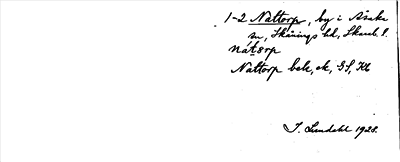 1-2 Nattorp, by i Åsaka
sn, Skånings hd, Skarab. l.
nátorp
Nattorp bek, ek, GS, Kk
I. Lundahl 1928.